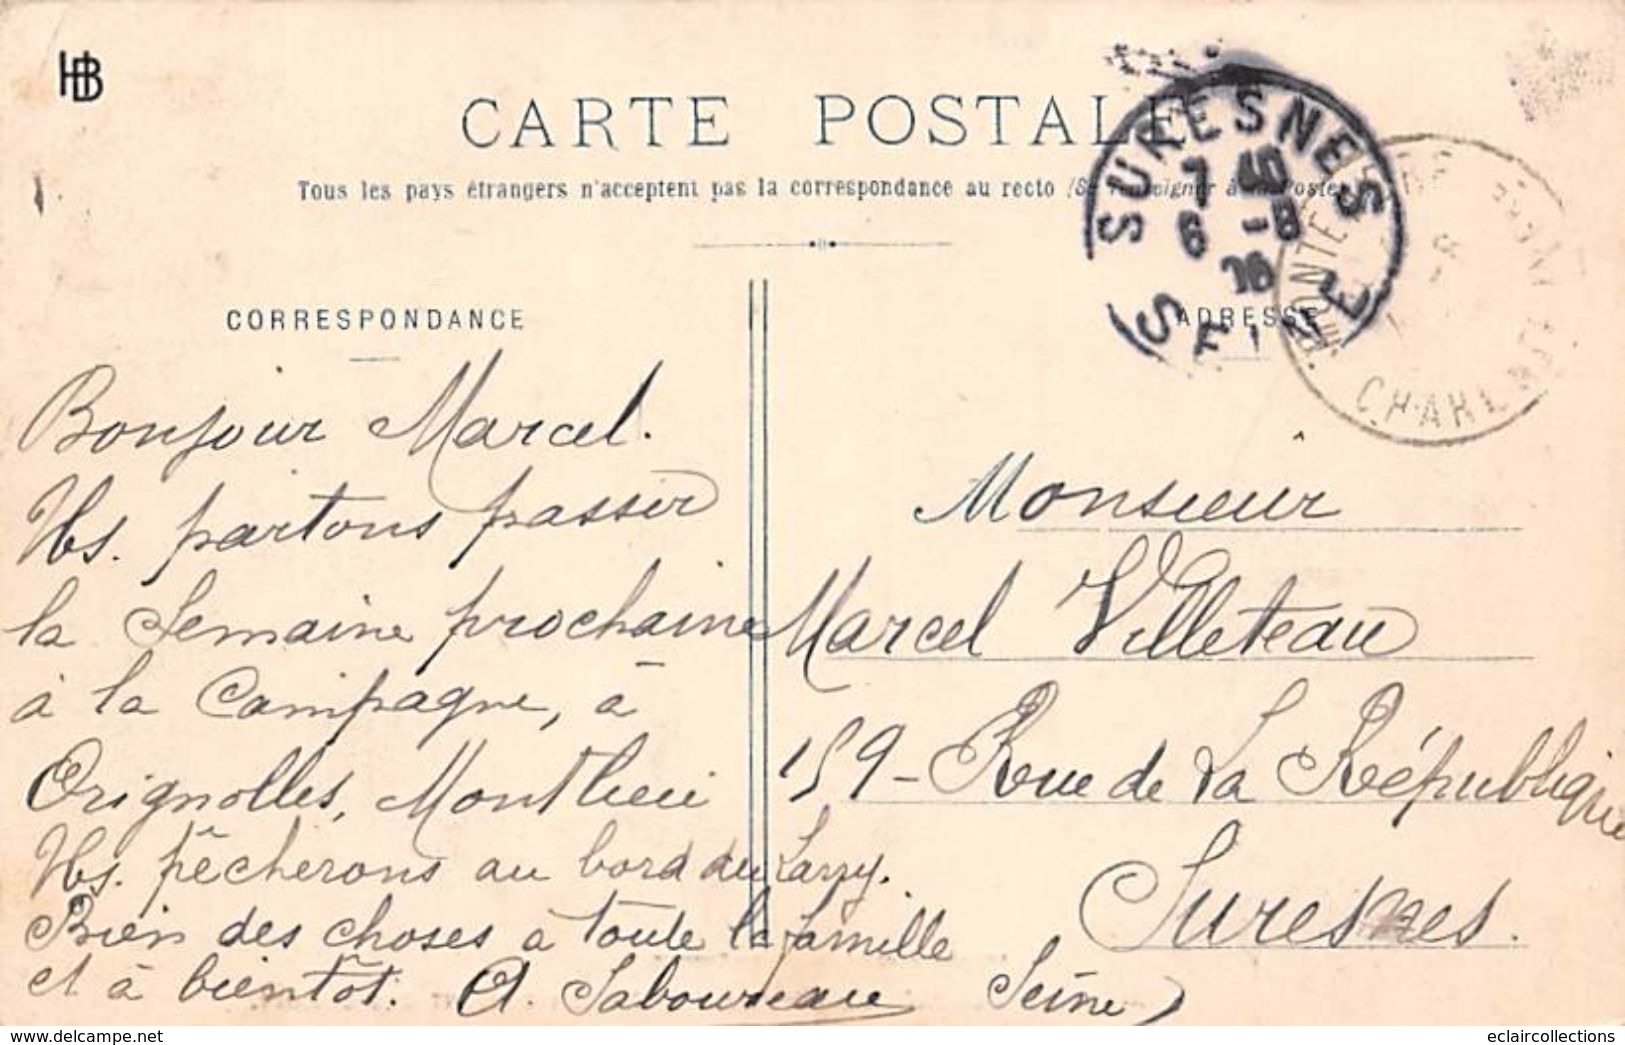 HB
CARTE POSTALE
Tous les pays étrangers n'acceptent pas la correspondance au recto (Se renseigner à la Poste)
SURESNES
7 40
6 -8
SEINE
CHARENTE
CORRESPONDANCE
ADRESSE
Bonjour Marcel.
Ns. partons passer
la Semaine prochaine
à la Campagne, à
Orignolles, Montlieu
Ns. pêcherons au bord du Larry.
Bien des choses à toute la famille
et à bientôt. A. Saboureau
Monsieur
Marcel Villeteau
159 - Rue de La République
Suresnes.
Seine)
www.delcampe.net
eclaircollections